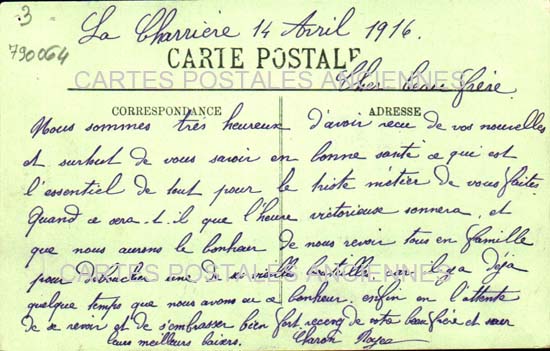 3
790064
La Charrière 14 Avril 1916.
CARTE POSTALE
Cher beau frère
CARTES POSTALES ANCIENNES
CORRESPONDANCE
ADRESSE
Nous sommes très heureux d'avoir recu de vos nouvelles
et surtout de vous savoir en bonne santé ce qui est
l'essentiel de tout pour le triste métier de vous faites.
Quand ce sera-t-il que l'heure victorieuse sonnera, et
que nous aurons le bonheur de nous revoir tous en famille
pour déboucher une de vieilles bouteilles, car il y a déjà
CARTES POSTALES ANCIENNES
quelque temps que nous avons eu ce bonheur. enfin en l'attente
de se revoir et de s'embrasser bien fort recevez de votre beau frère et sœur
leurs meilleurs baisers. Charon